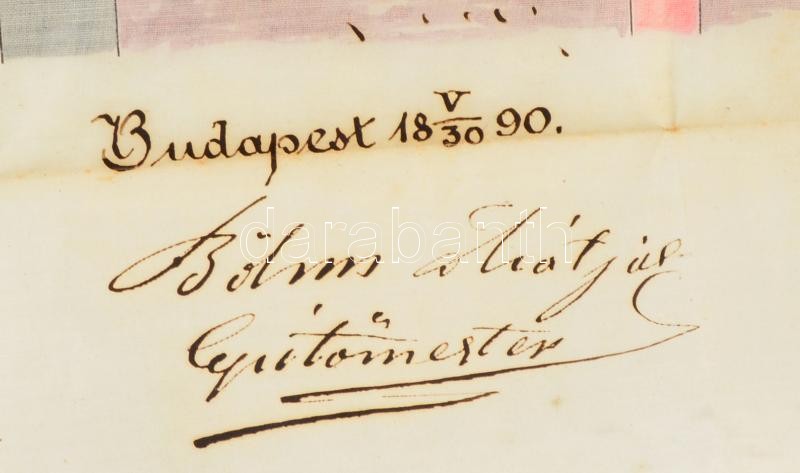 Budapest 18 V/30 90.
Böhm Mátyás
építőmester
darabanth